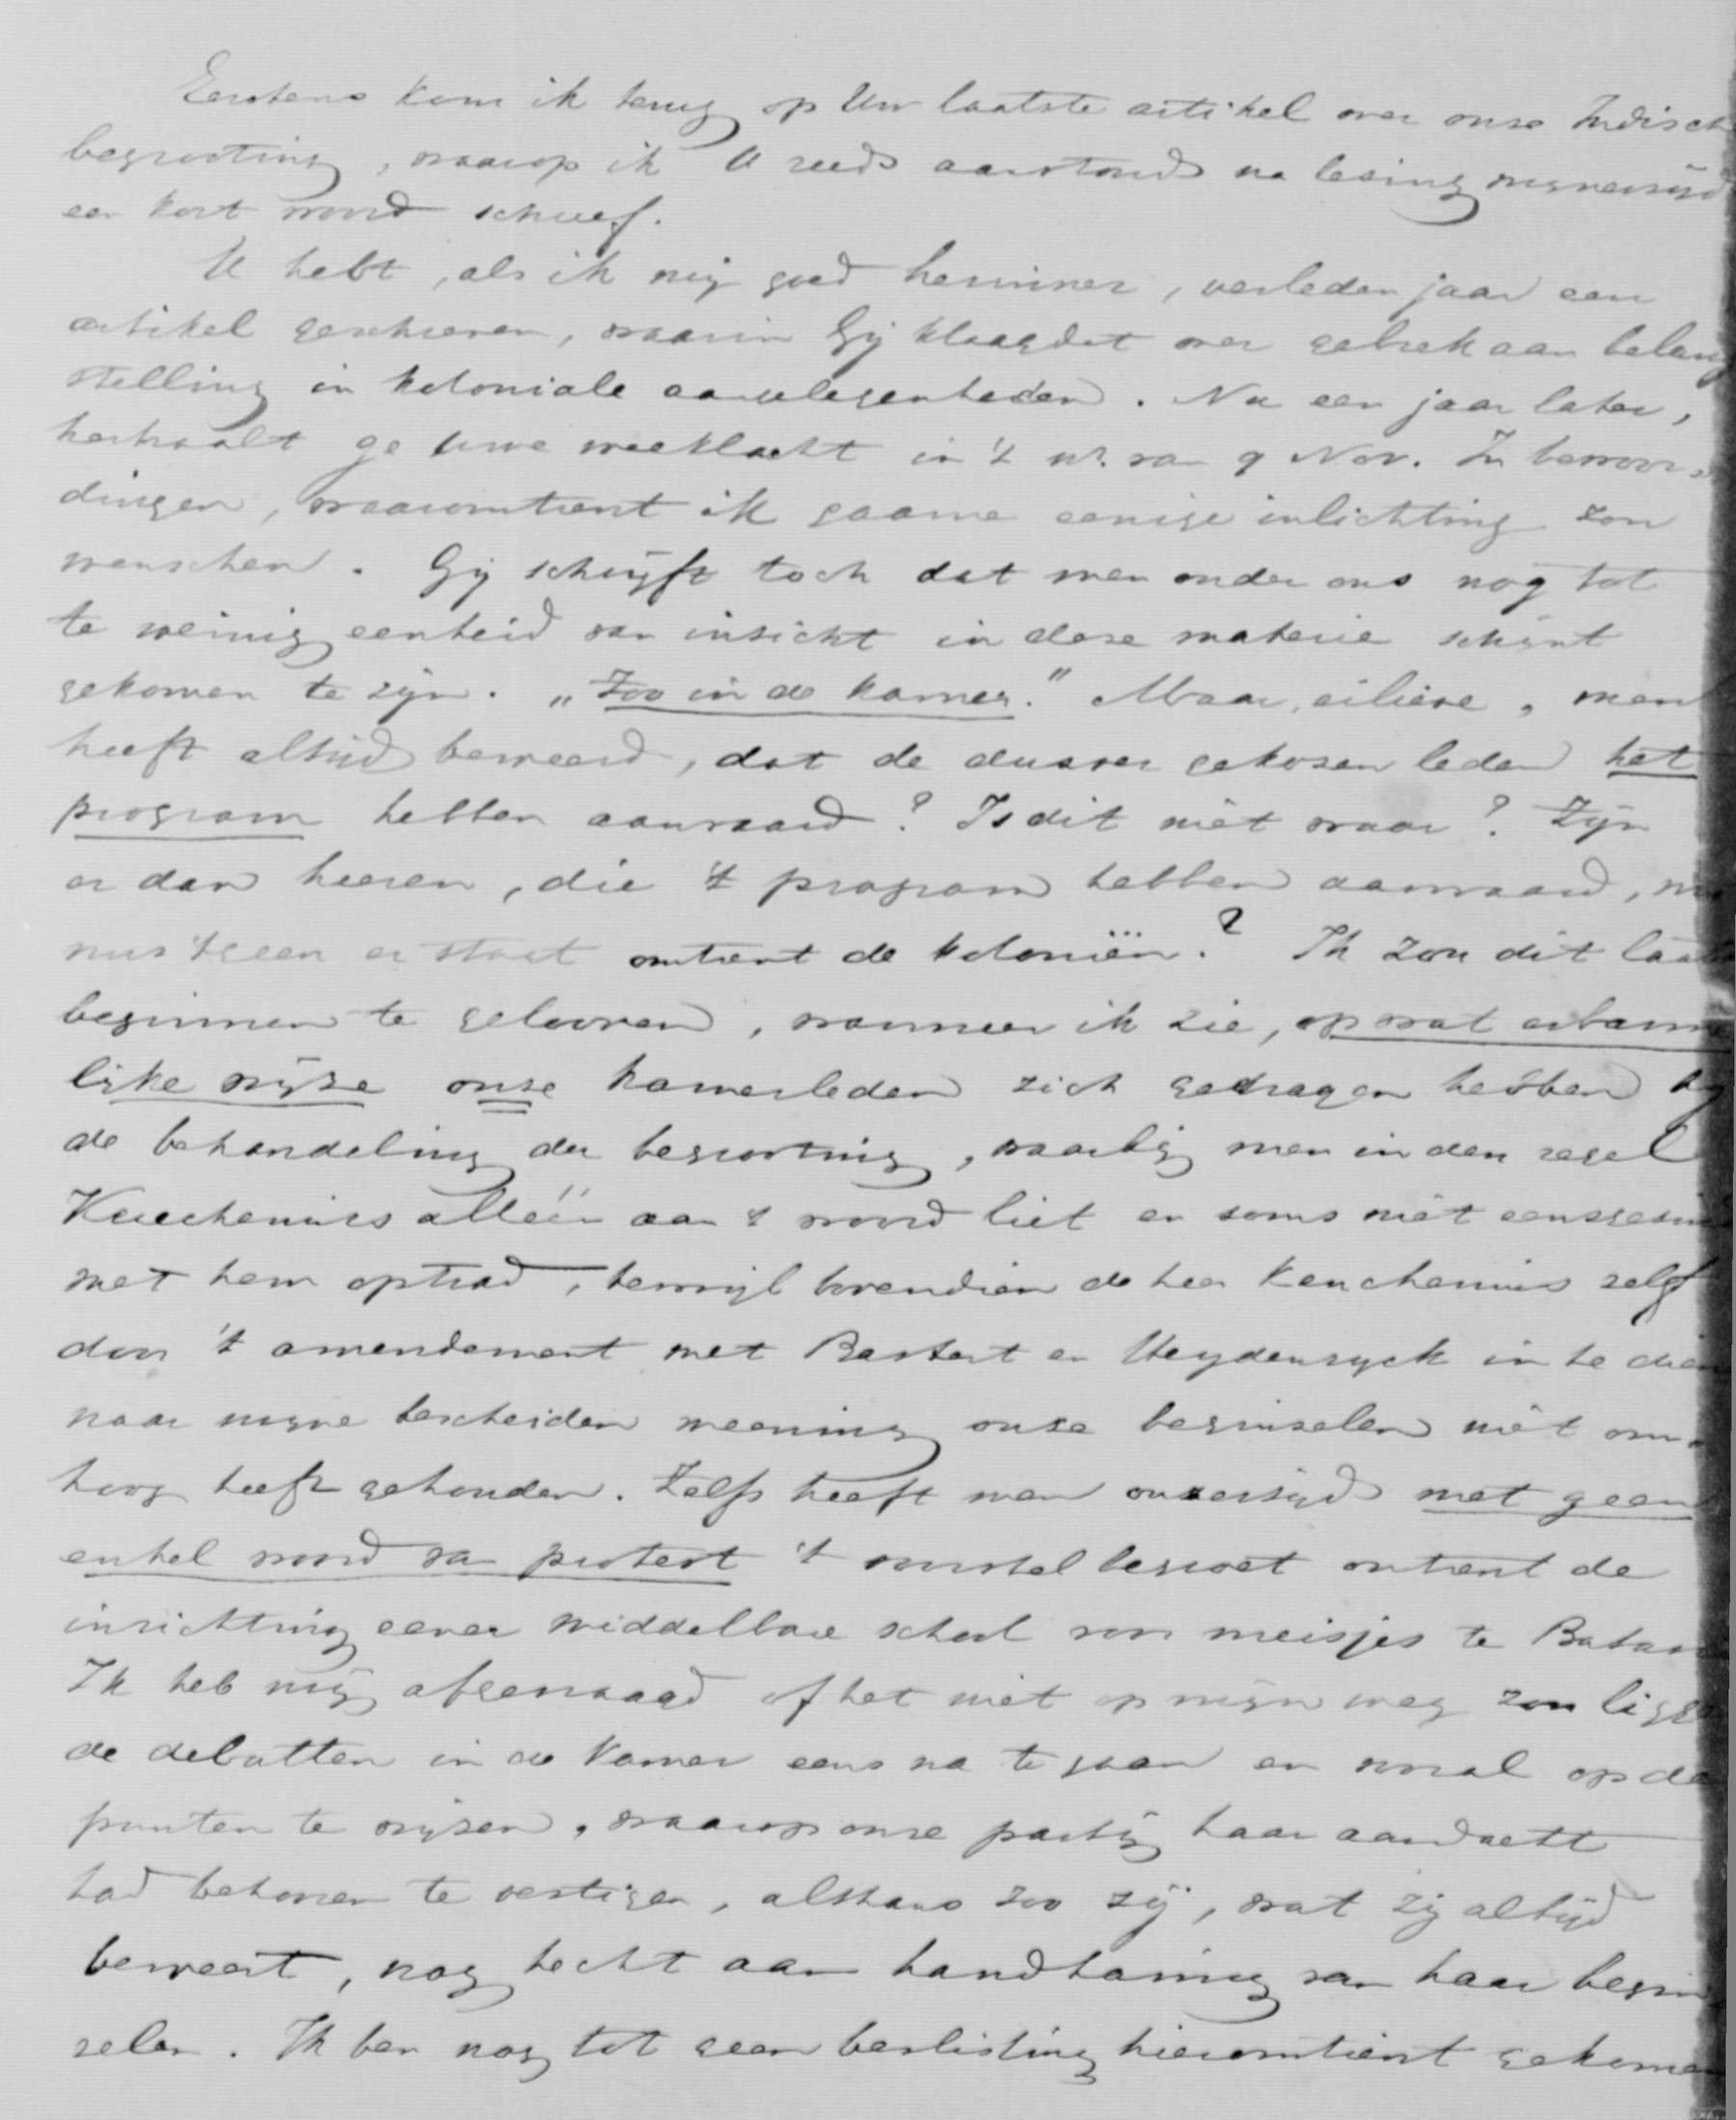 Eerstens kom ik terug op Uw laatste artikel over onze Indisch
begrooting, waarop ik U reeds aanstonds na lezing mynerzyds
een kort woord schreef.
U hebt, als ik mij goed herinner, verleden jaar een
artikel geschreven, waarin Gij klaagdet over gebrek aan belang
stelling in koloniale aangelegenheden. Nu een jaar later,
herhaalt ge uwe weeklacht in 't nr. van 9 Nov. In bewoor-
dingen, waaromtrent ik gaarne eenige inlichting zou
wenschen. Gij schryft toch dat men onder ons nog tot
te weinig eenheid van inzicht in deze materie schynt
gekomen te zyn. „Zoo in de kamer." Maar, eilieve, men
heeft altijd beweerd, dat de dusver gekozen leden het
program hebben aanvaard? Is dit niet waar? Zyn
er dan heeren, die 't program hebben aanvaard, mi
nus 'tgeen er staat omtrent de koloniën? Ik zou dit laats
beginnen te gelooven, wanneer ik zie, op wat erbarme
lyke wyze onze kamerleden zich gedragen hebben by
de behandeling der begrooting, waarbij men in den regel
Keuchenius alléén aan 't woord liet en soms niet eensgezin
met hem optrad, terwyl bovendien de heer Keuchenius zelf
door 't amendement met Bastert en Heydenryck in te dien
naar myne bescheiden meening onze beginselen niet om-
hoog heeft gehouden. Zelfs heeft men onzerzyds met geen
enkel woord van protest 't voorstel begroet omtrent de
inrichting eener middelbare school voor meisjes te Batav
Ik heb mij afgevraagd of het niet op mijn weg zou ligge
de debatten in de Kamer eens na te gaan en vooral op de
punten te wyzen, waarop onze partij haar aandacht
had behooren te vestigen, althans zoo zij, wat zij altijd
beweert, nog hecht aan handhaving van haar begin
selen. Ik ben nog tot geen beslissing hieromtrent gekomen